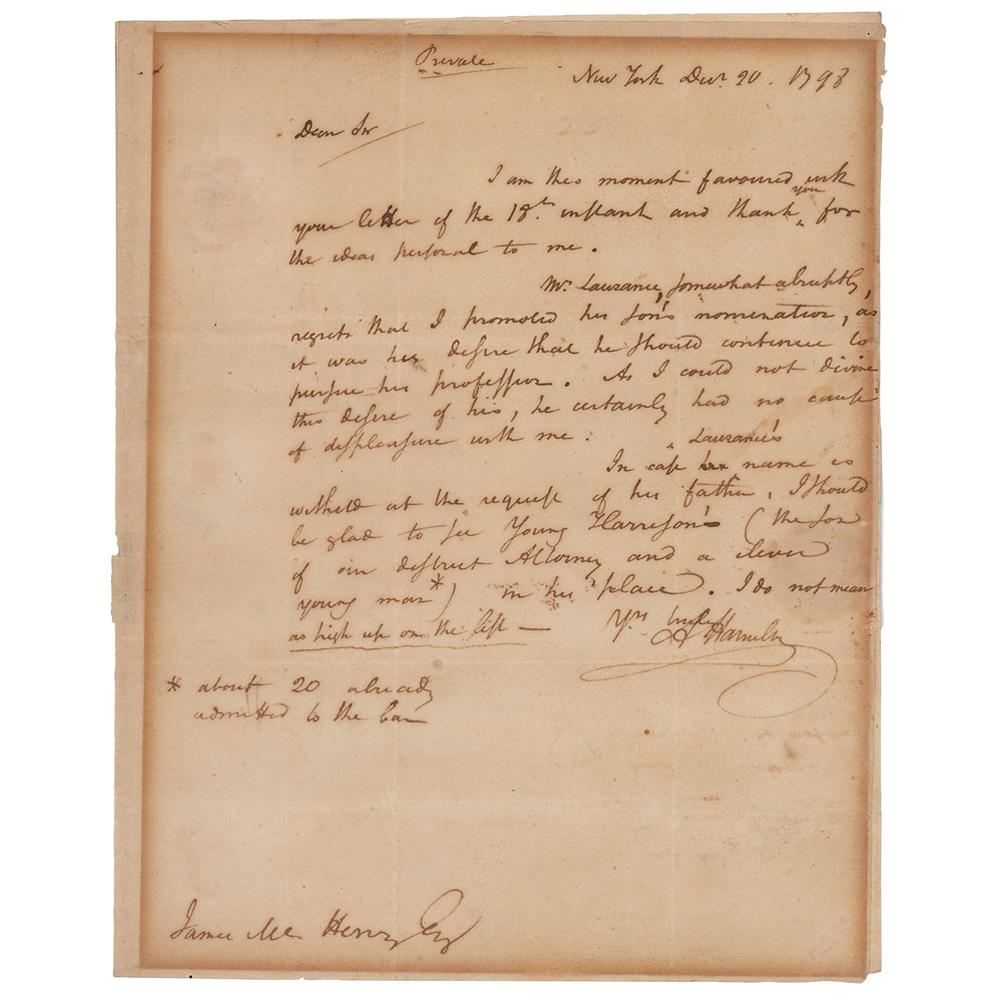 Private
New York Decr. 20. 1798
Dear Sir
I am this moment favoured with
you
your letter of the 18th. instant and thank ^ for
the ideas personal to me.
Mr. Laurance, somewhat abruptly,
regrets that I promoted his son's nomination, as
it was his desire that he should continue to
pursue his profession. As I could not divine
this desire of his, he certainly had no cause
of displeasure with me.
Laurance's
In case his name is
witheld at the request of his father, I should
be glad to see Young Harrison's (the son
of our district Attorney and a clever
young man*) in his place. I do not mean
as high up on the list —
Yrs truly
A Hamilton
* about 20 already
admitted to the bar
James Mc Henry Esq